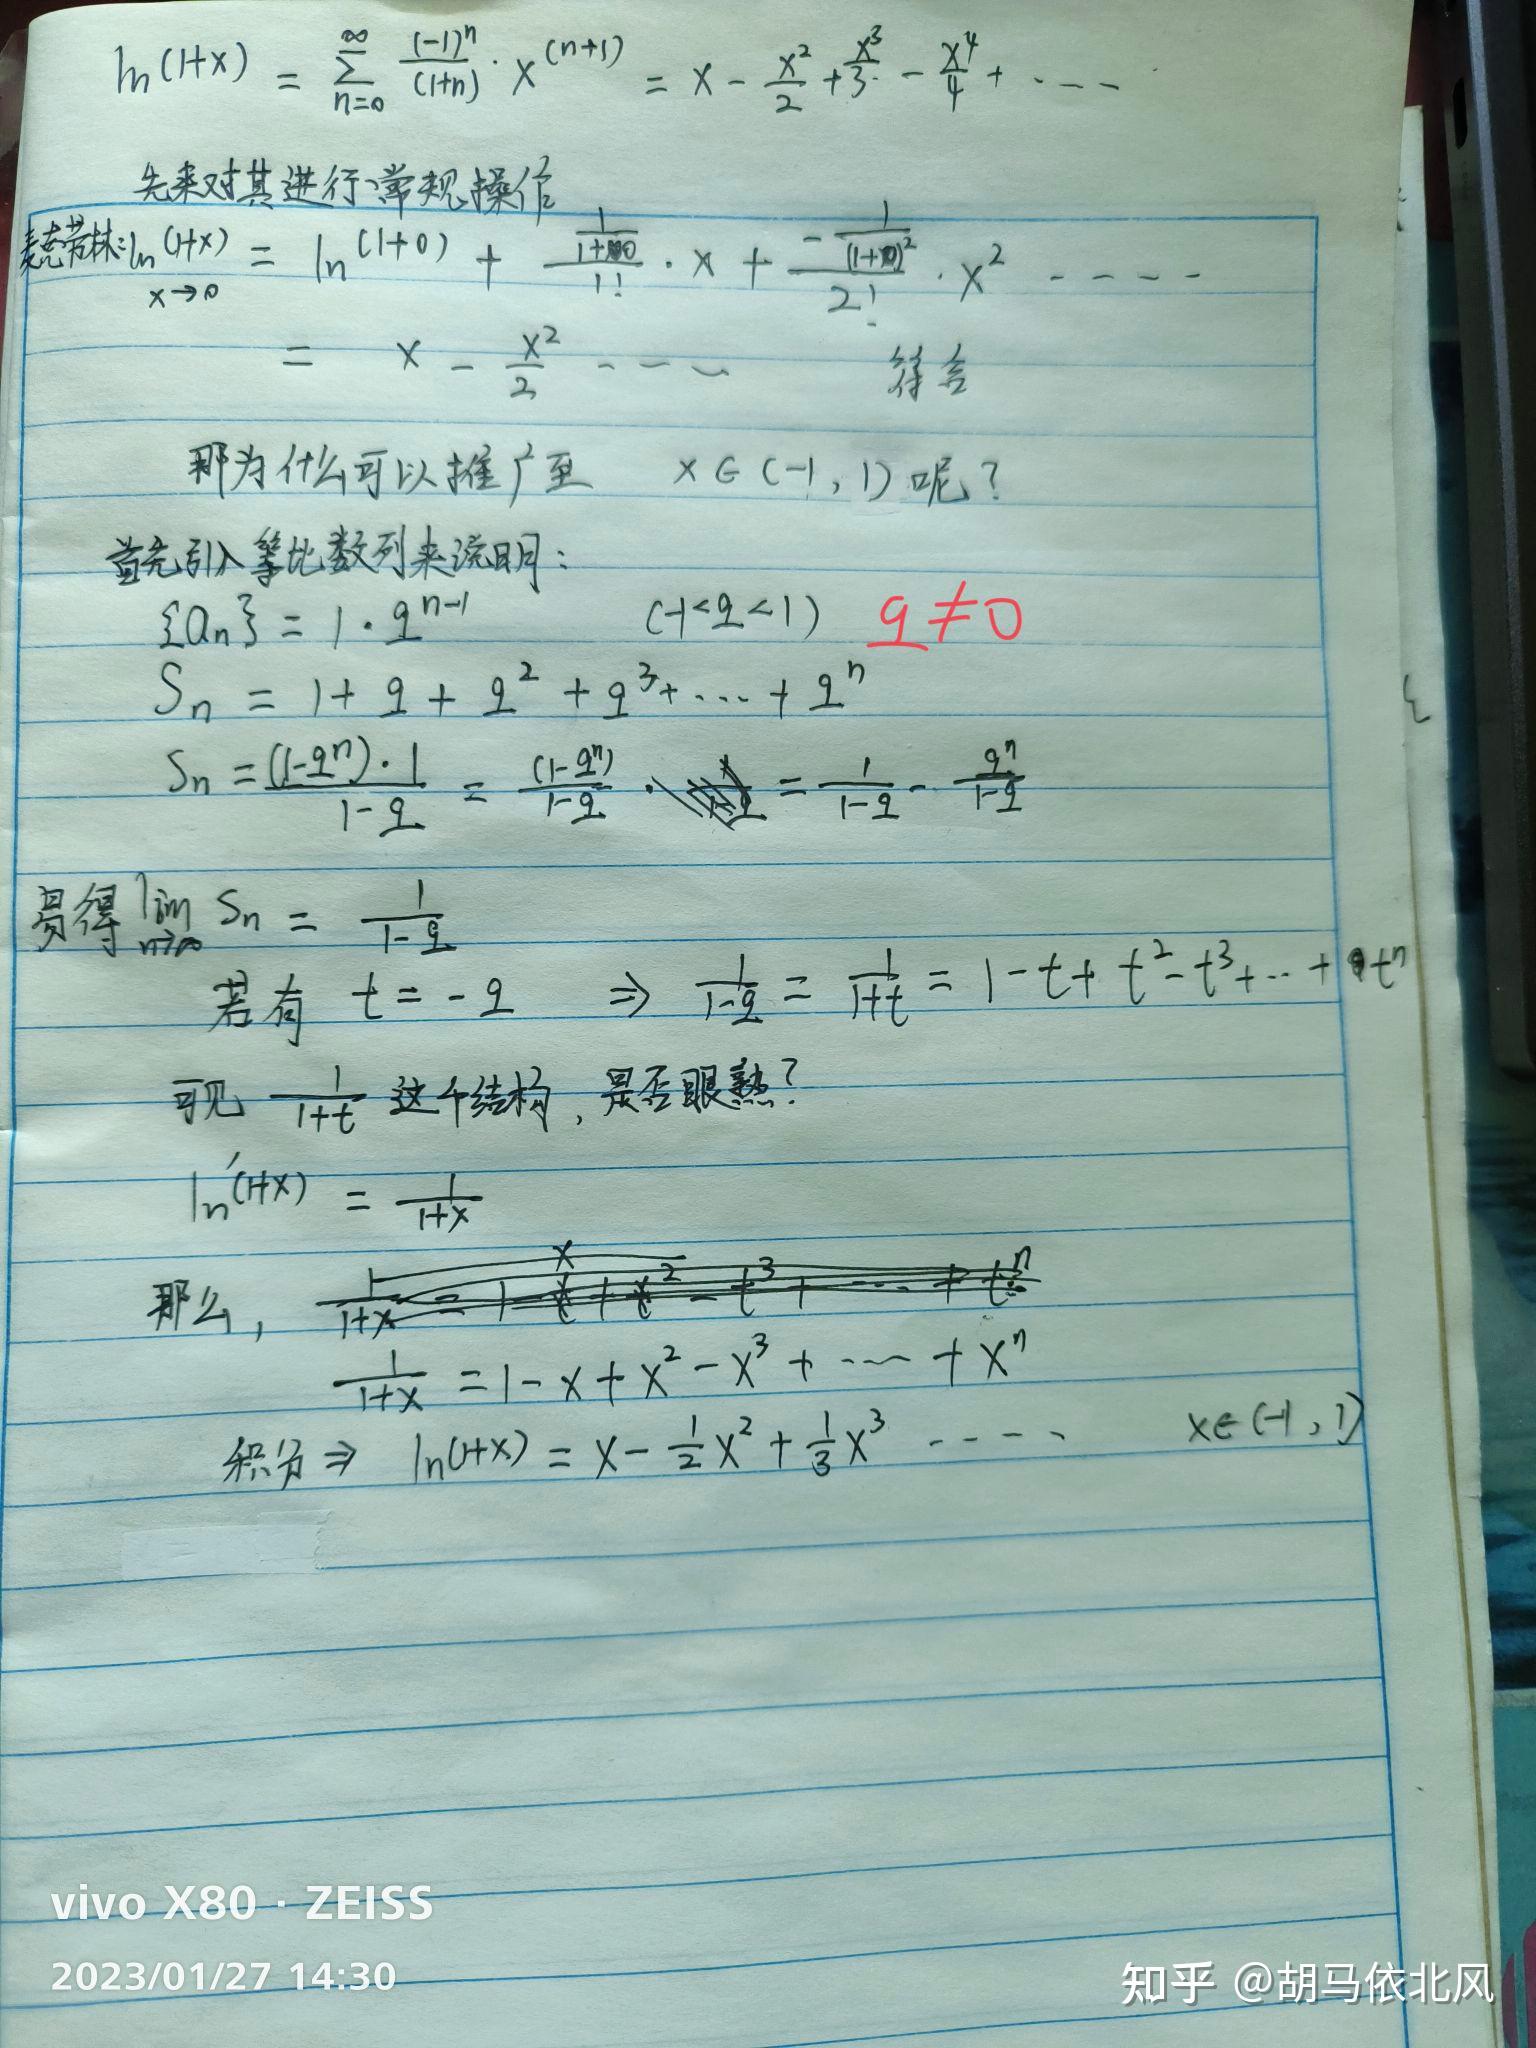 ln(1+x) = ∑_{n=0}^{∞} (-1)^n/(1+n) · x^(n+1) = x - x²/2 + x³/3 - x⁴/4 + ·····
先来对其进行常规操作
麦克劳林: ln(1+x) x→0 = ln(1+0) + (1/(1+0))/1! · x + (-1/(1+0)²)/2! · x² ····
= x - x²/2 ···· 符合
那为什么可以推广至 x∈(-1, 1)呢?
首先引入等比数列来说明:
{an} = 1·q^{n-1} (-1<q<1) q≠0
Sn = 1+q+q²+q³+···+q^n
Sn = (1-q^n)·1/(1-q) = (1-q^n)/(1-q) · = 1/(1-q) - q^n/(1-q)
易得 lim_{n→∞} Sn = 1/(1-q)
若有 t=-q ⇒ 1/(1-q) = 1/(1+t) = 1-t+t²-t³+···+t^n
可见 1/(1+t) 这个结构, 是否眼熟?
ln'(1+x) = 1/(1+x)
那么,
1/(1+x) = 1-x+x²-x³+····+x^n
积分⇒ ln(1+x) = x - 1/2 x² + 1/3 x³ ····· x∈(-1, 1)
vivo X80 · ZEISS
2023/01/27 14:30
知乎 @胡马依北风